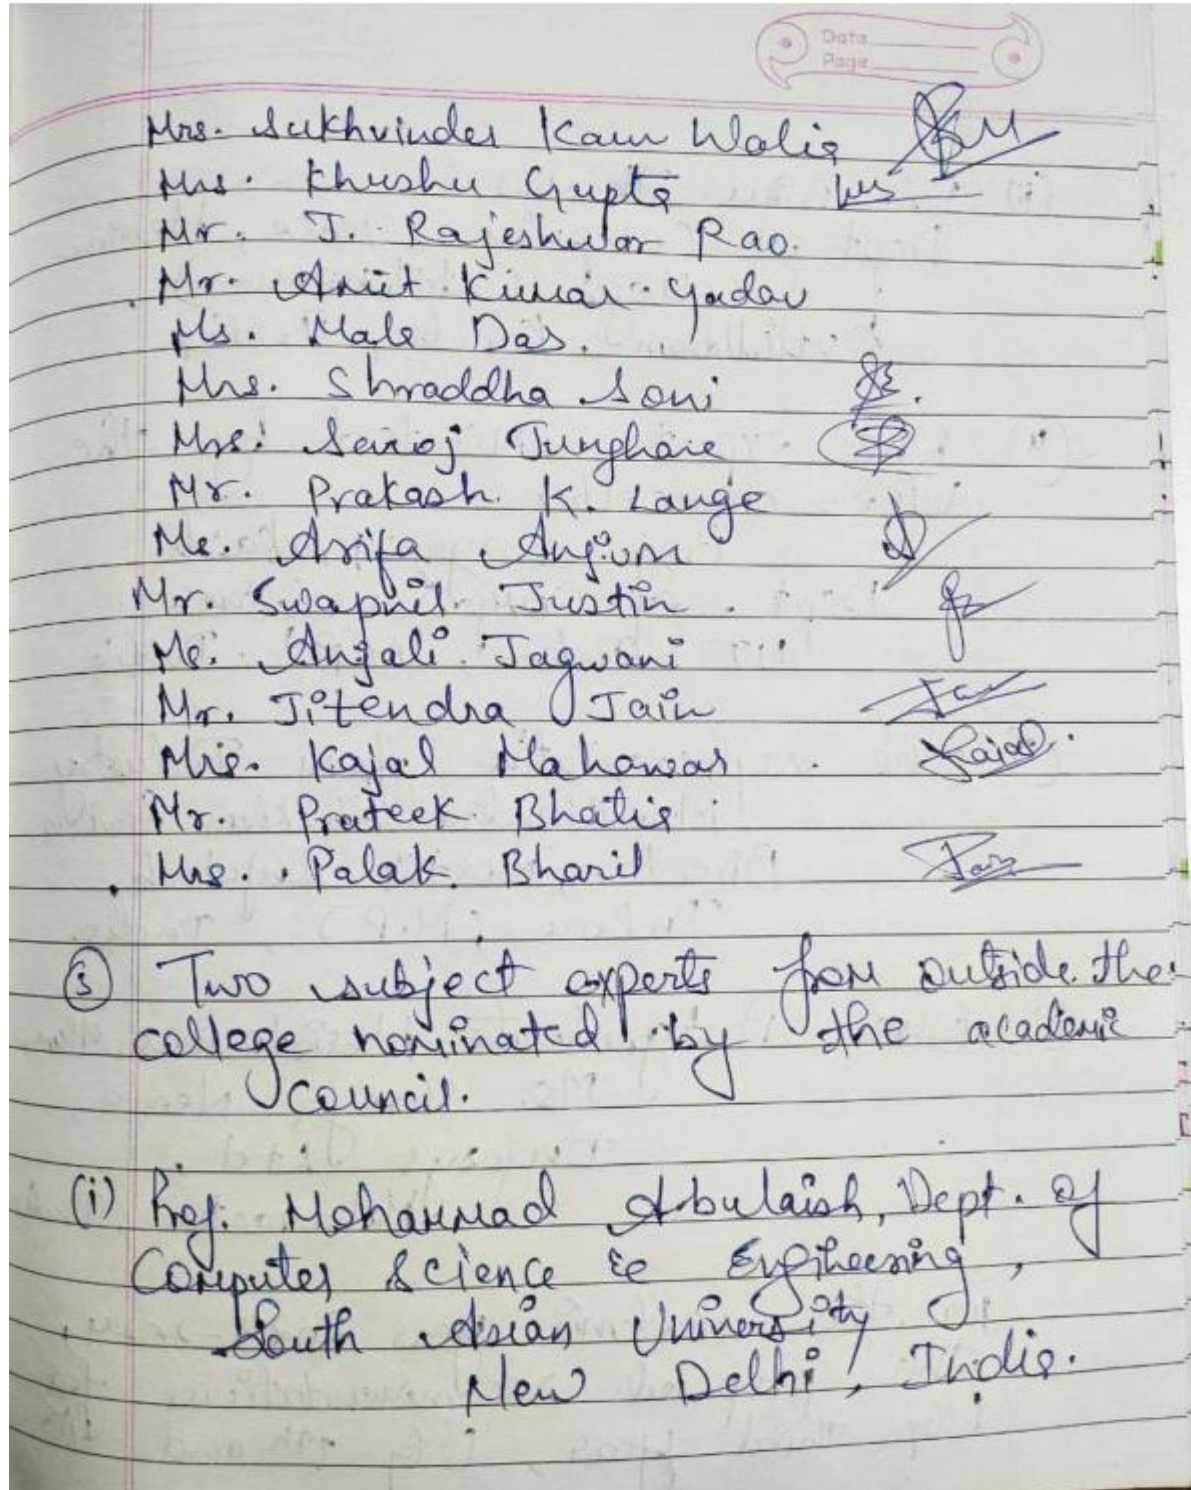 Date
Page
Mrs. Sukhvinder Kaur Walia
Mrs. Khushu Gupta
Mr. J. Rajeshwar Rao.
Mr. Amit Kumar Yadav
Ms. Mala Das.
Mrs. Shraddha Soni
Mrs. Saroj Junghare
Mr. Prakash K. Lange
Ms. Arifa Anjum
Mr. Swapnil Justin
Ms. Anjali Jagwani
Mr. Jitendra Jain
Mrs. Kajal Mahawar Kajal
Mr. Prateek Bhatia
Mrs. Palak Bharil
③ Two subject experts from outside the
college nominated by the academic
council.
(i) Prof. Mohammad Abulaish, Dept. of
Computer Science & Engineering,
South Asian University
New Delhi, India.